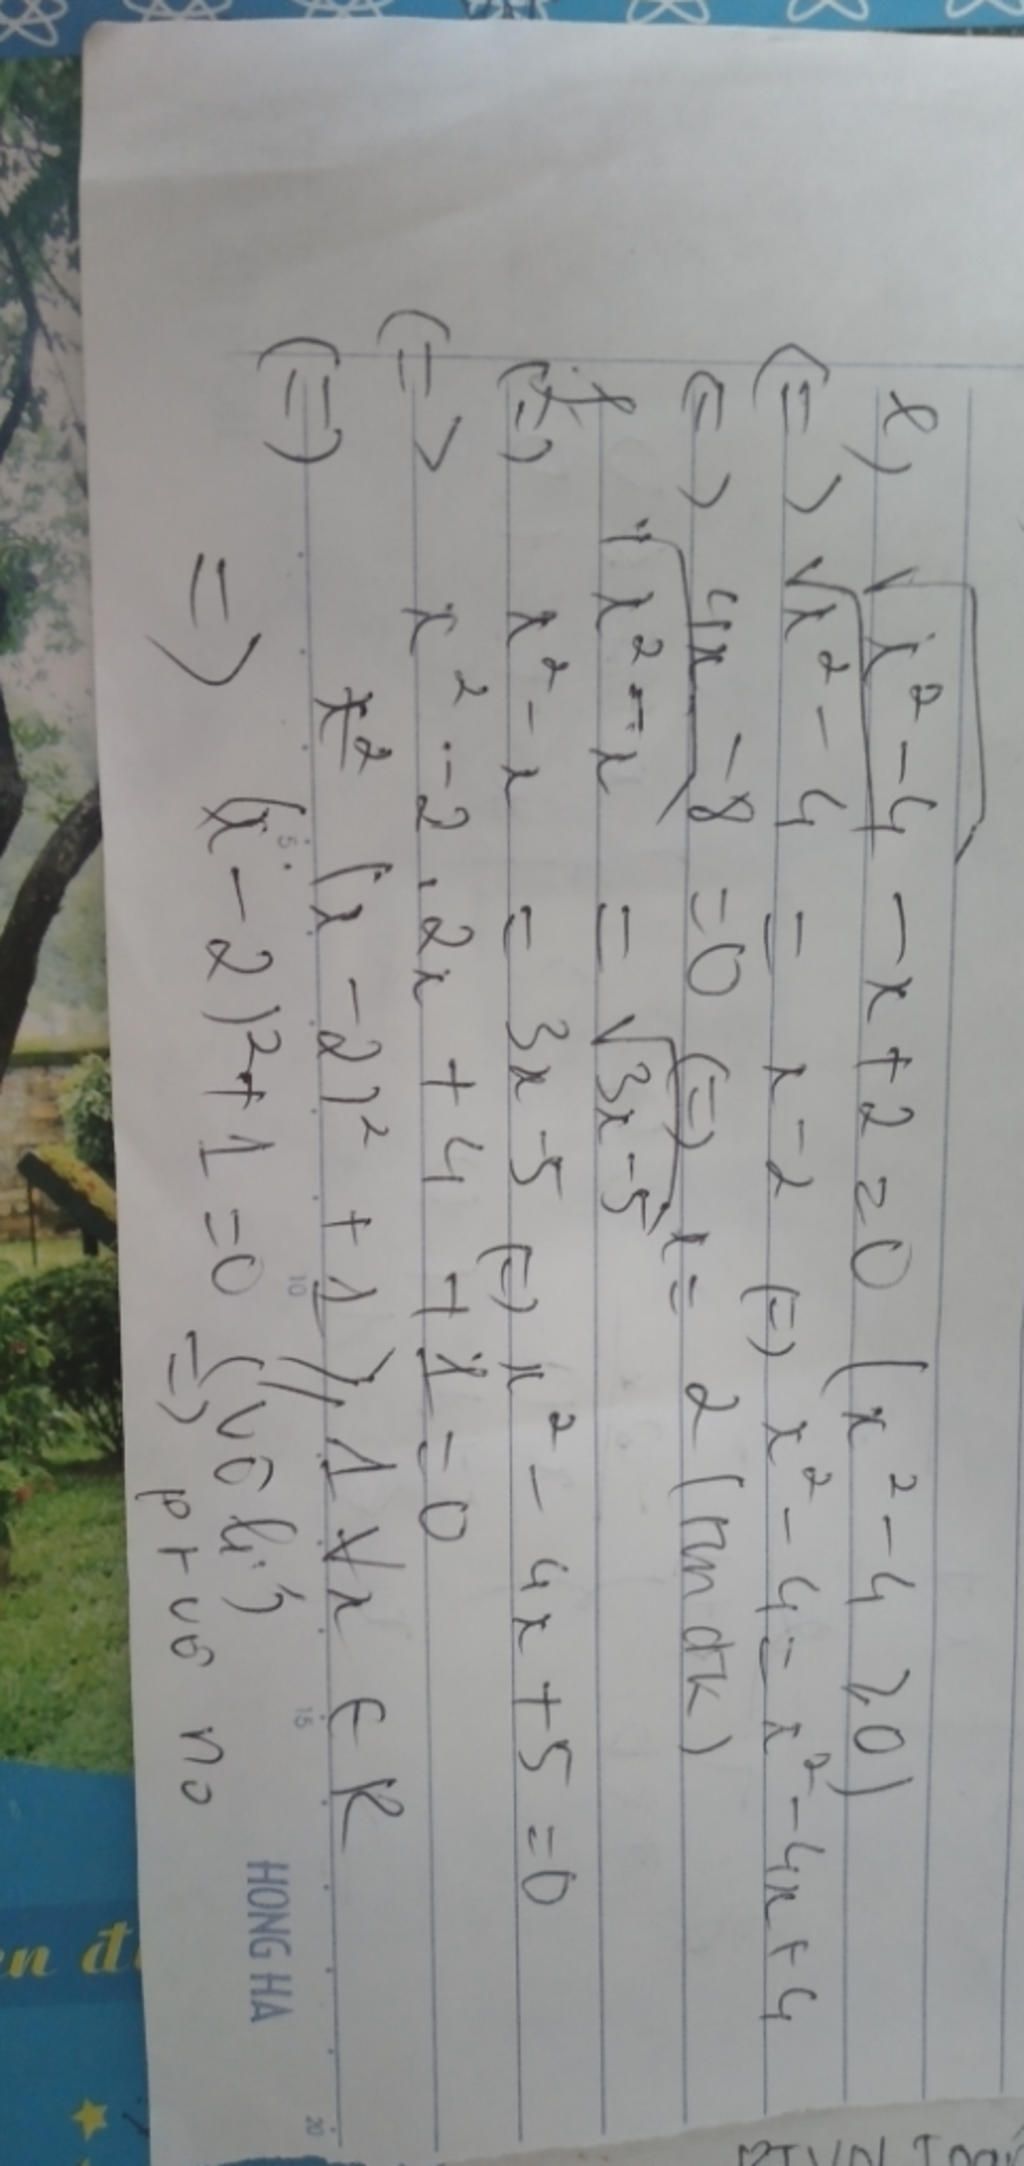 e) √x² - 4 - x + 2 = 0 (x² - 4 ⩾ 0)
(=) √x² - 4 = x - 2 (=) x² - 4 = x² - 4x + 4
(=) 4x - 8 = 0 (=) x = 2 (tm đk)
f √x² - x = √3x - 5
(=) x² - x = 3x - 5 (=) x² - 4x + 5 = 0
(=> x² - 2.2x + 4 + 1 = 0
(=) (x - 2)² + 1 ⩾ 1 ∀x ∈ R
=> (x - 2)² + 1 = 0 (vô lí)
=) pt vô no
HONG HA
5
10
15
20
BTVN Toán
en đ